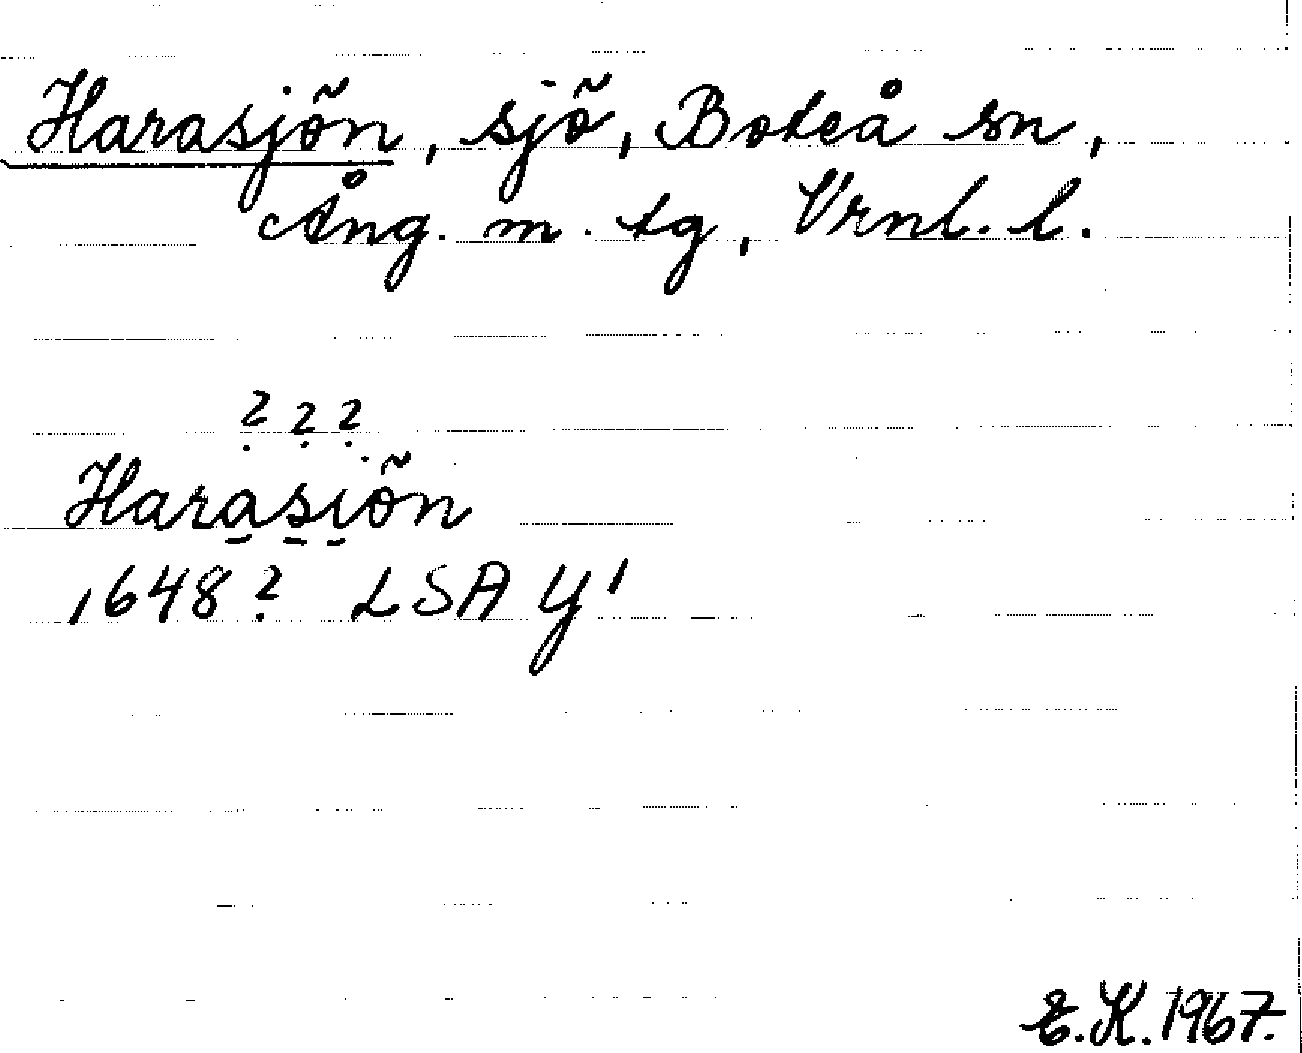 Harasjön, sjö, Boteå sn,
Ång. m. tg, Vrnl. l.
? ? ?
Harasiön
1648? LSA Y1
E.K. 1967.